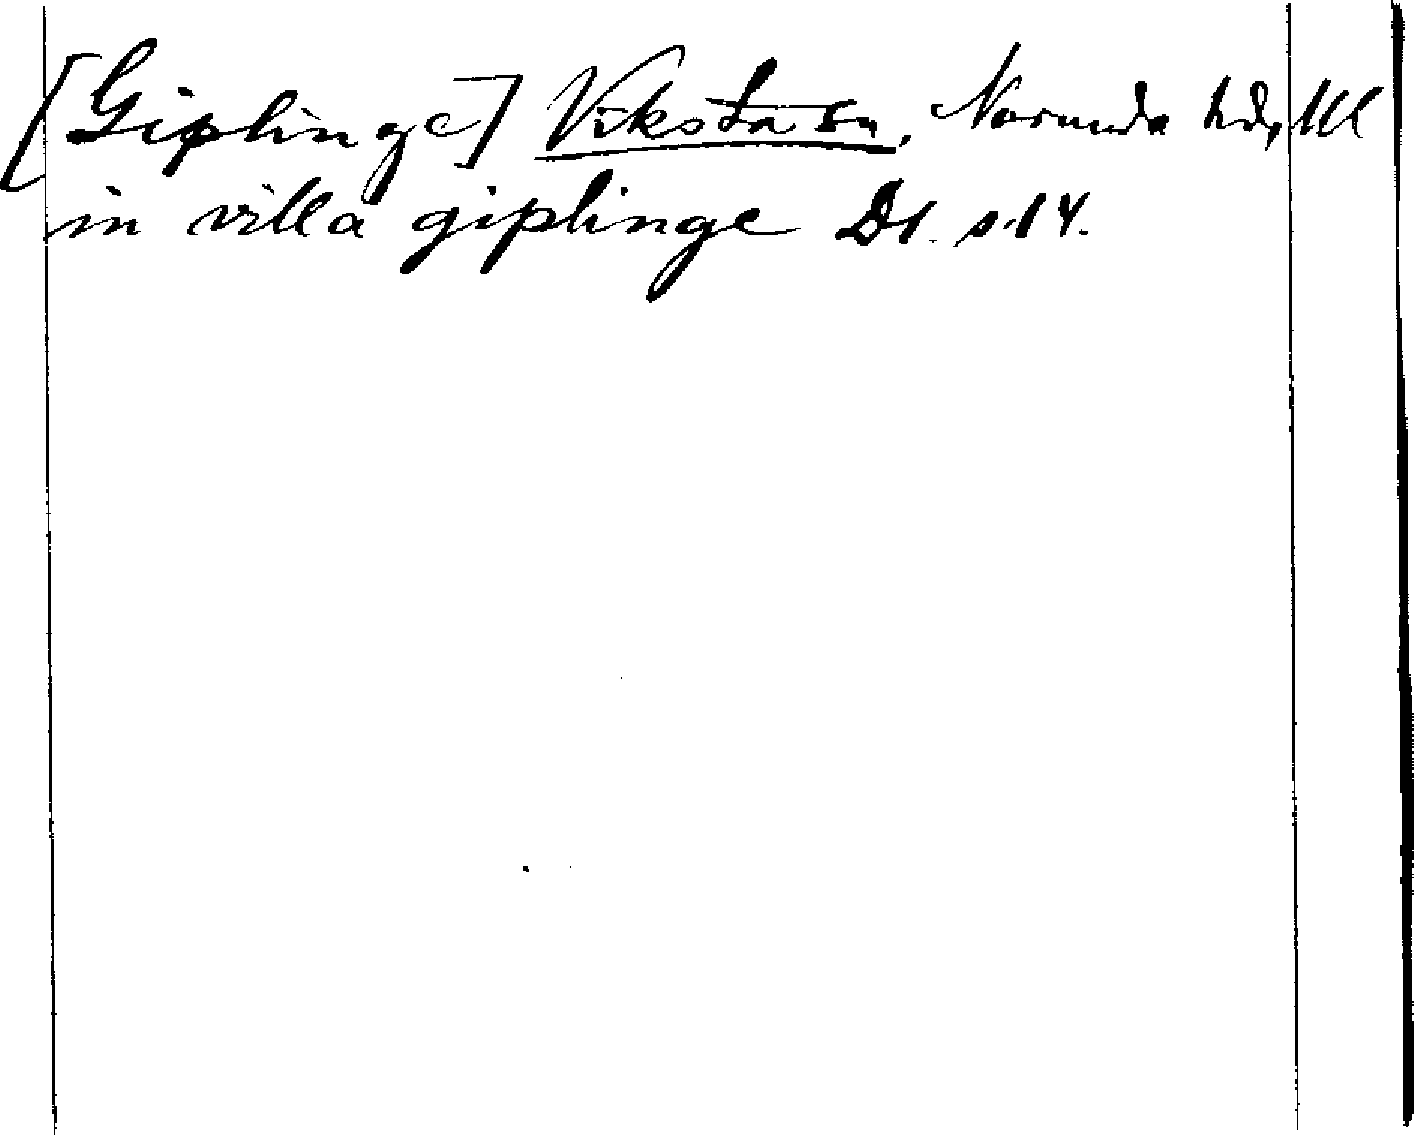 [Giplinge] Viksta sn, Norunda hd, Ul
in villa giplinge D1. s. 14.